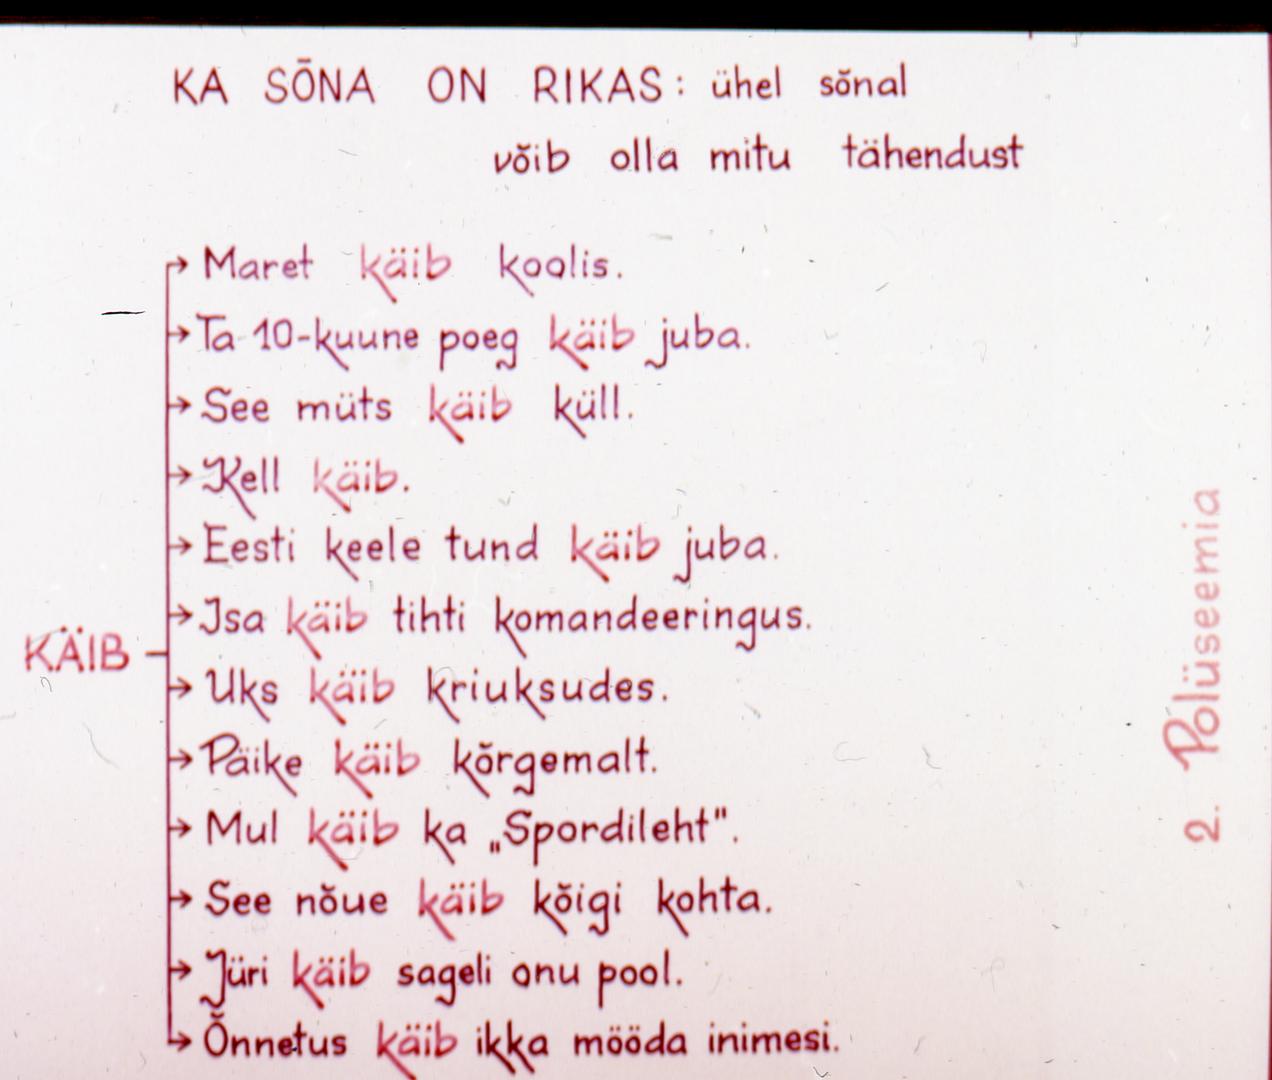 KA SÕNA ON RIKAS: ühel sõnal
võib olla mitu tähendust
Maret käib koolis.
Ta 10-kuune poeg käib juba.
See müts käib küll.
Kell käib.
Eesti keele tund käib juba.
Isa käib tihti komandeeringus.
KÄIB
Uks käib kriuksudes.
Päike käib kõrgemalt.
Mul käib ka „Spordileht".
See nõue käib kõigi kohta.
Jüri käib sageli onu pool.
Õnnetus käib ikka mööda inimesi.
2. Polüseemia